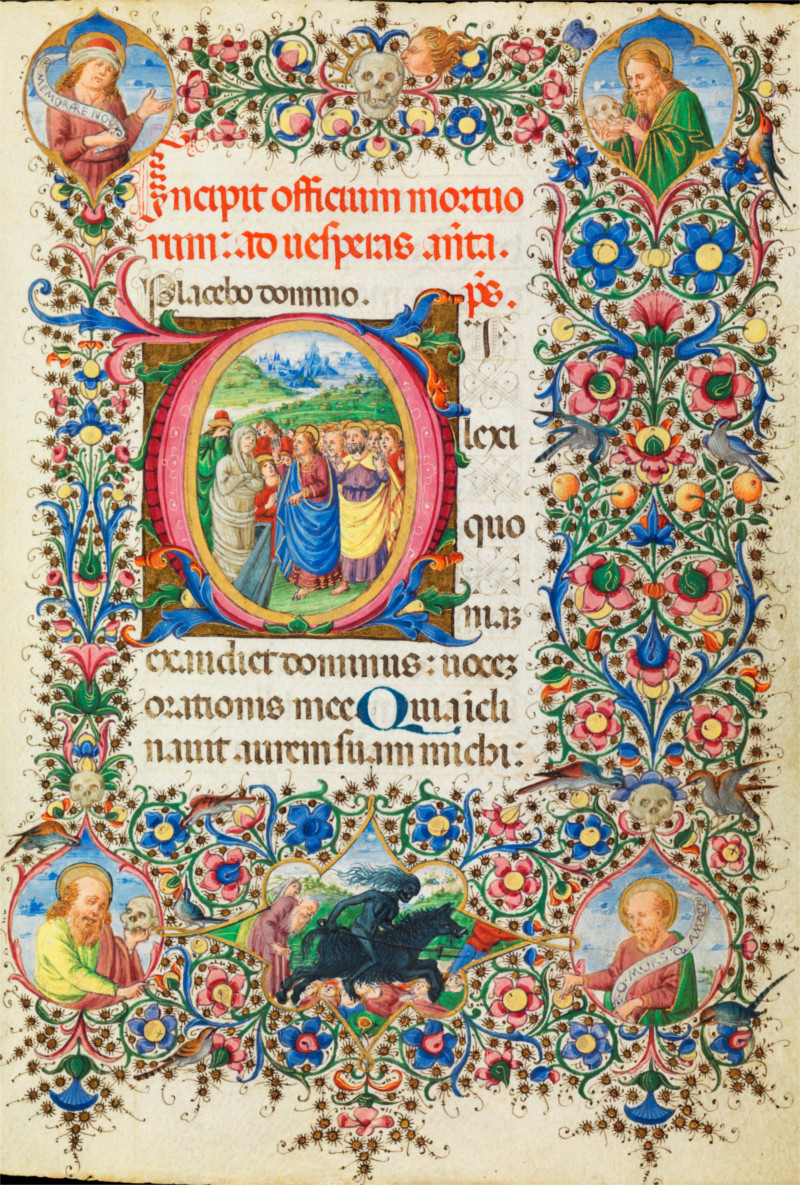 MEMORARE NOVI
Incipit officium mortuo
rum: ad uesperas an̄ta.
Placebo domino. p̄s.
D I
lexi
quo
niaz
exaudiet dominus: uocez
orationis mee Quia īcli
nauit aurem suam michi:
O MORS Q AMAR